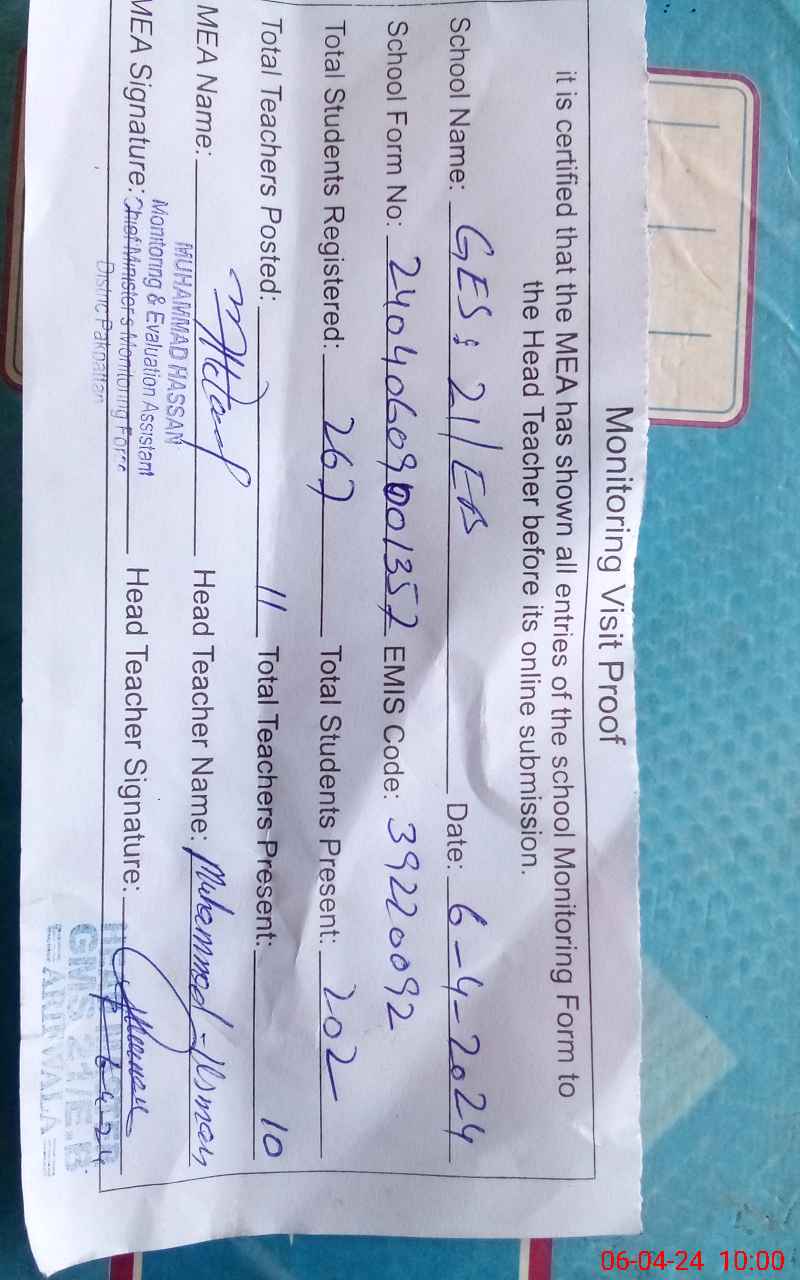 Monitoring Visit Proof
it is certified that the MEA has shown all entries of the school Monitoring Form to
the Head Teacher before its online submission.
School Name: GES: 21/EB Date: 6-4-2024
School Form No: 24040609001352 EMIS Code: 39220092
Total Students Registered: 267 Total Students Present: 202
Total Teachers Posted: 11 Total Teachers Present: 10
MEA Name: Head Teacher Name: Muhammad-Usman
MUHAMMAD HASSAN
Monitoring & Evaluation Assistant
MEA Signature: Chief Minister's Monitoring Force Head Teacher Signature:
District Pakpattan
6-4-24
GMS 21/E.B
ARIFWALA
06-04-24 10:00